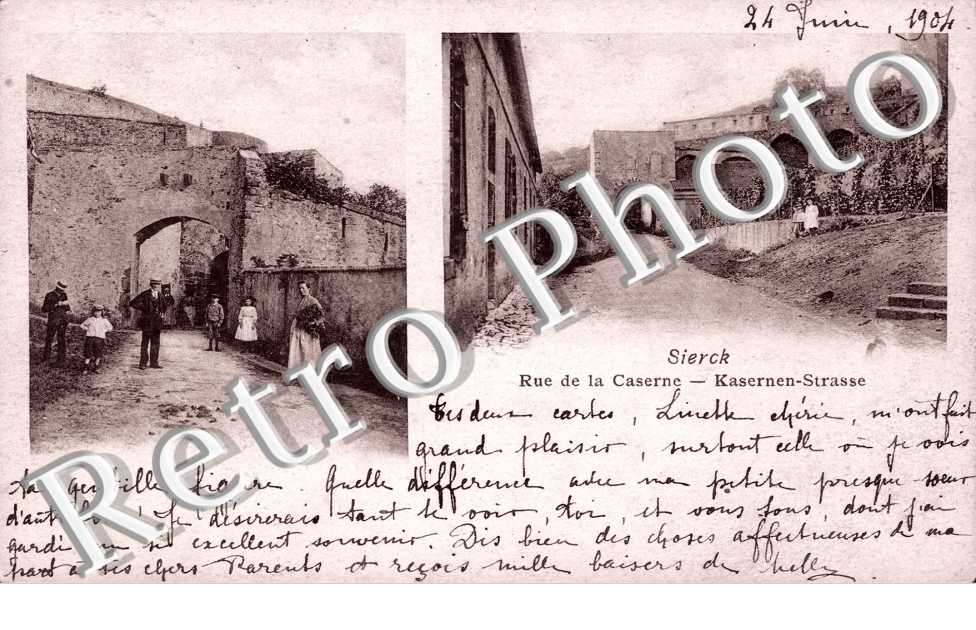 24 Juin, 1904.
Sierck
Rue de la Caserne — Kasernen-Strasse
Tes deux cartes, Linette chérie, m'ont fait
grand plaisir, surtout celle où je vois
ta gentille figure. Quelle différence avec ma petite presque soeur
d'autrefois! Je désirerais tant te voir, toi, et vous tous, dont j'ai
gardé un si excellent souvenir. Dis bien des choses affectueuses de ma
part à tes chers Parents et reçois mille baisers de Nelly
Retro Photo